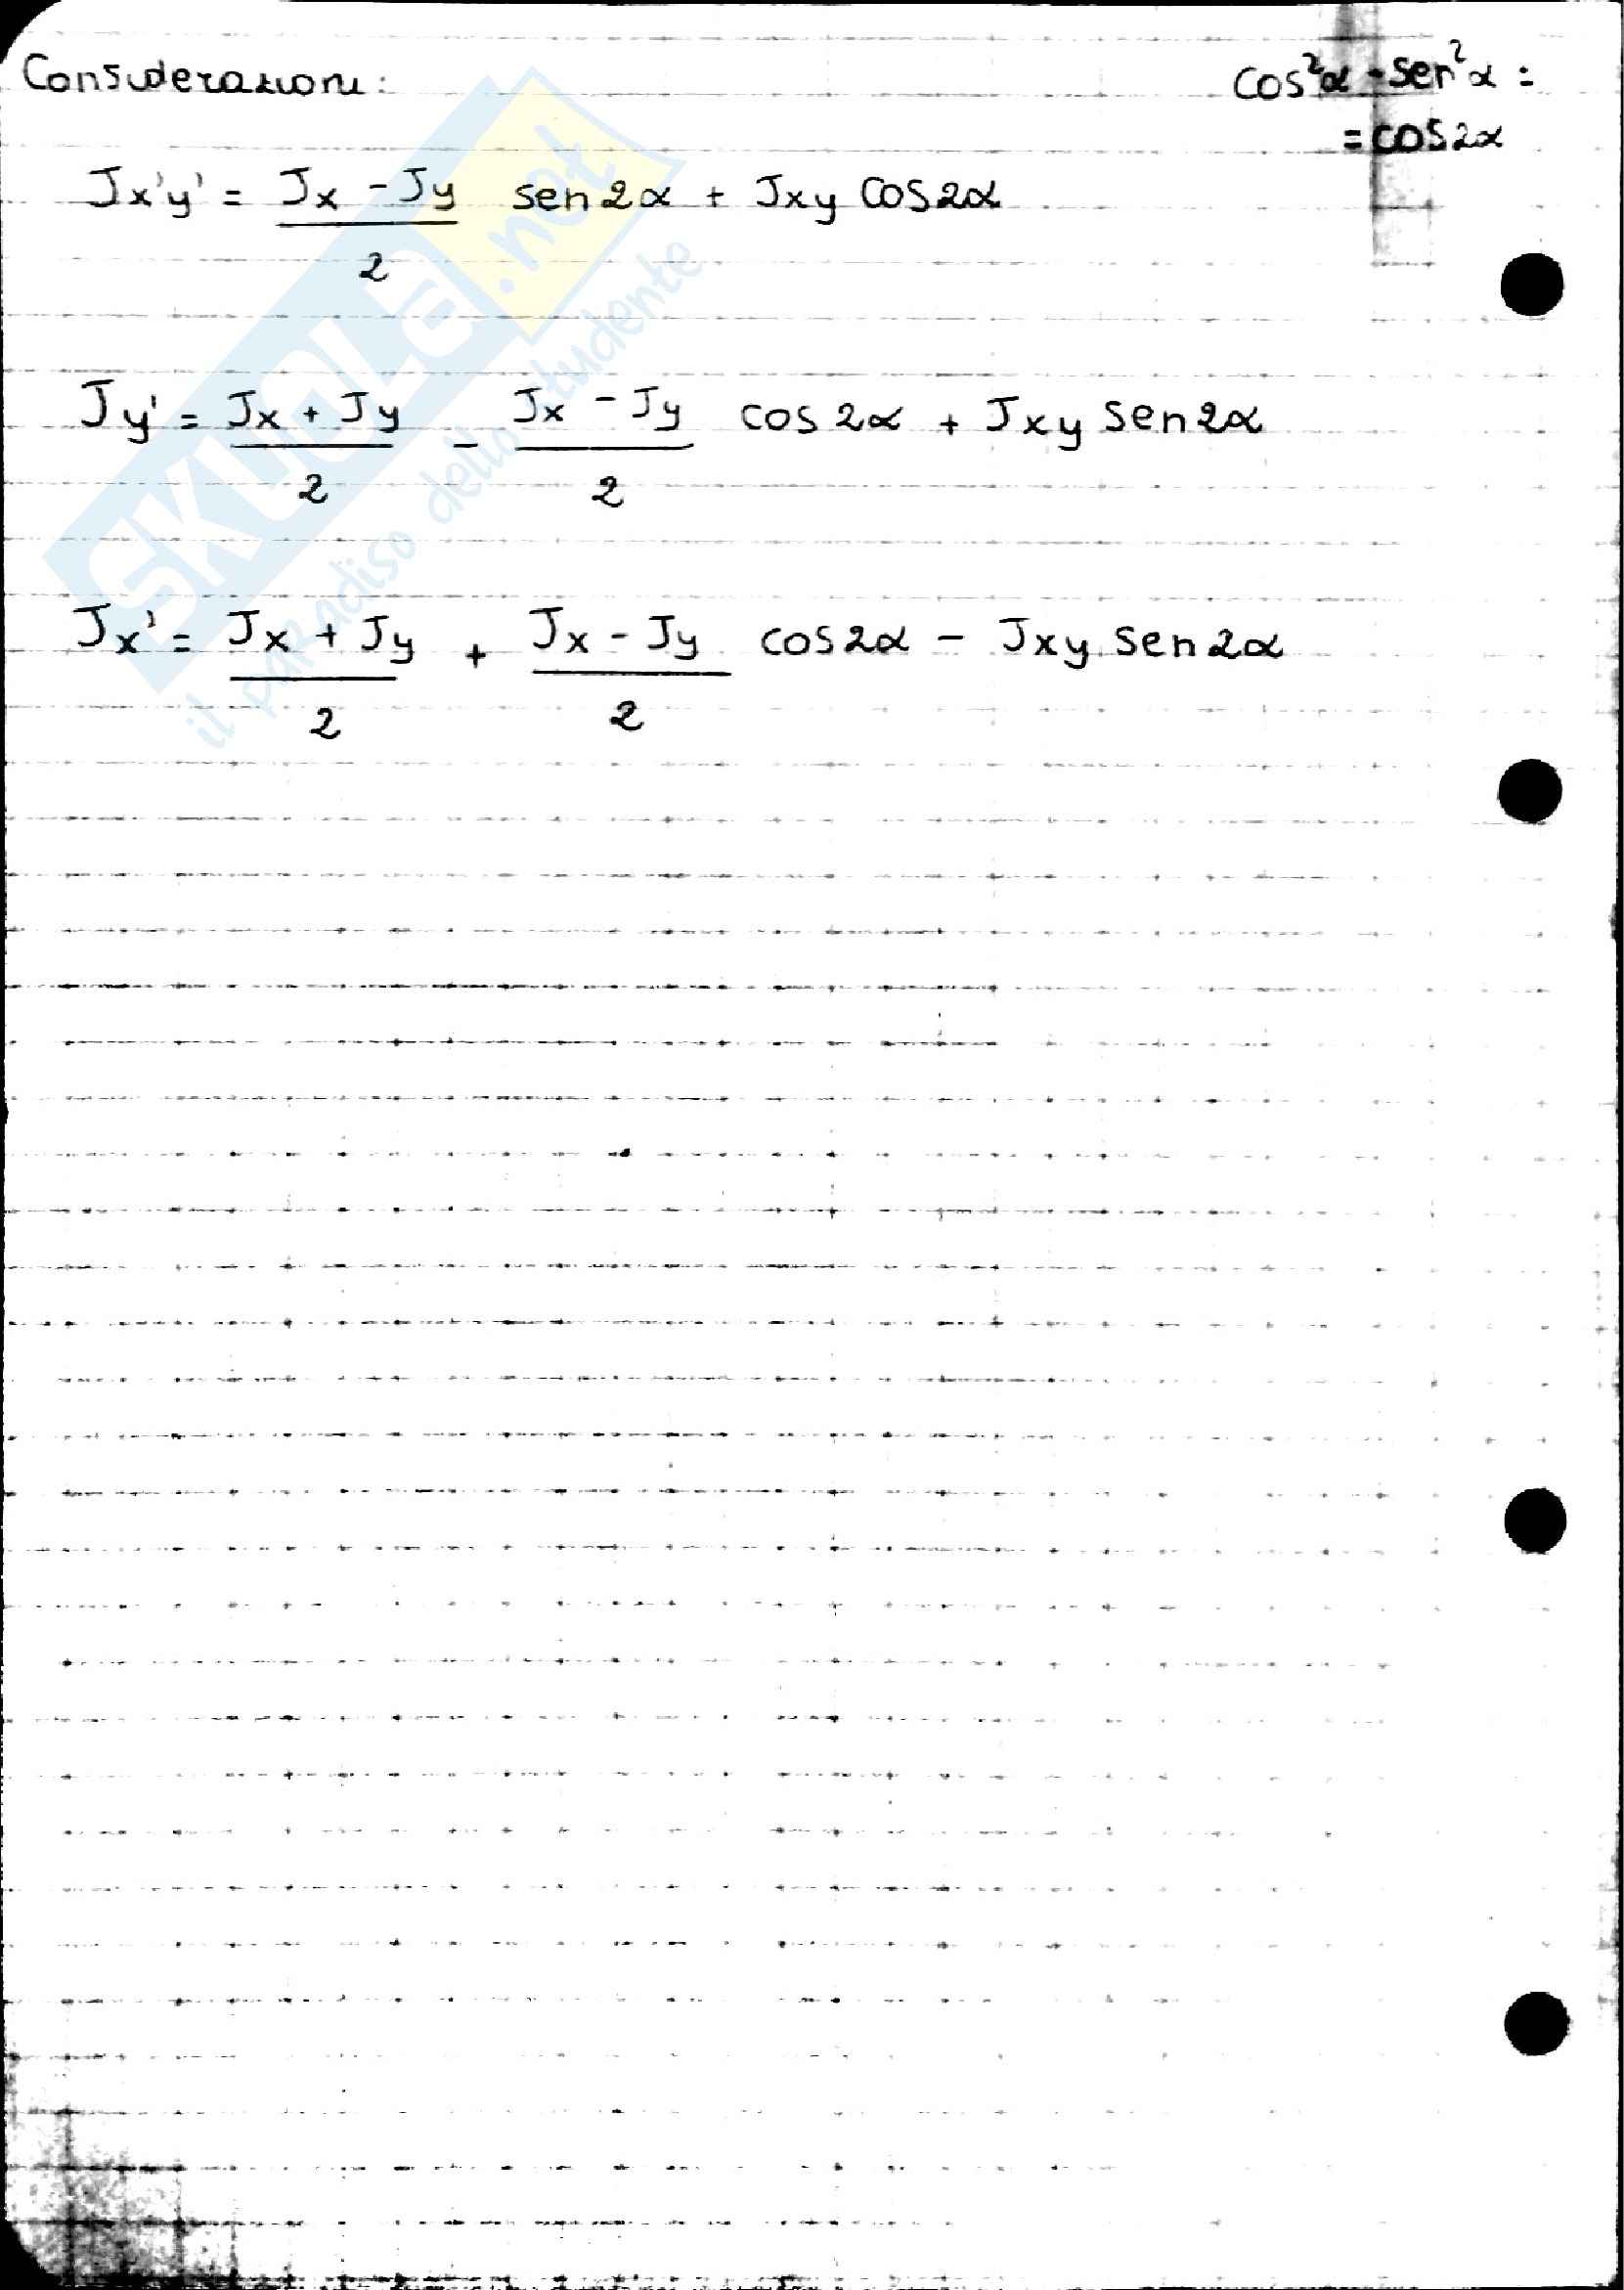 Considerazioni:
cos²α - sen²α =
= cos2α
Jx'y' = Jx - Jy / 2 sen2α + Jxy cos2α
Jy' = Jx + Jy / 2 - Jx - Jy / 2 cos2α + Jxy sen2α
Jx' = Jx + Jy / 2 + Jx - Jy / 2 cos2α - Jxy sen2α
SKUOLA.net
il paradiso dello studente